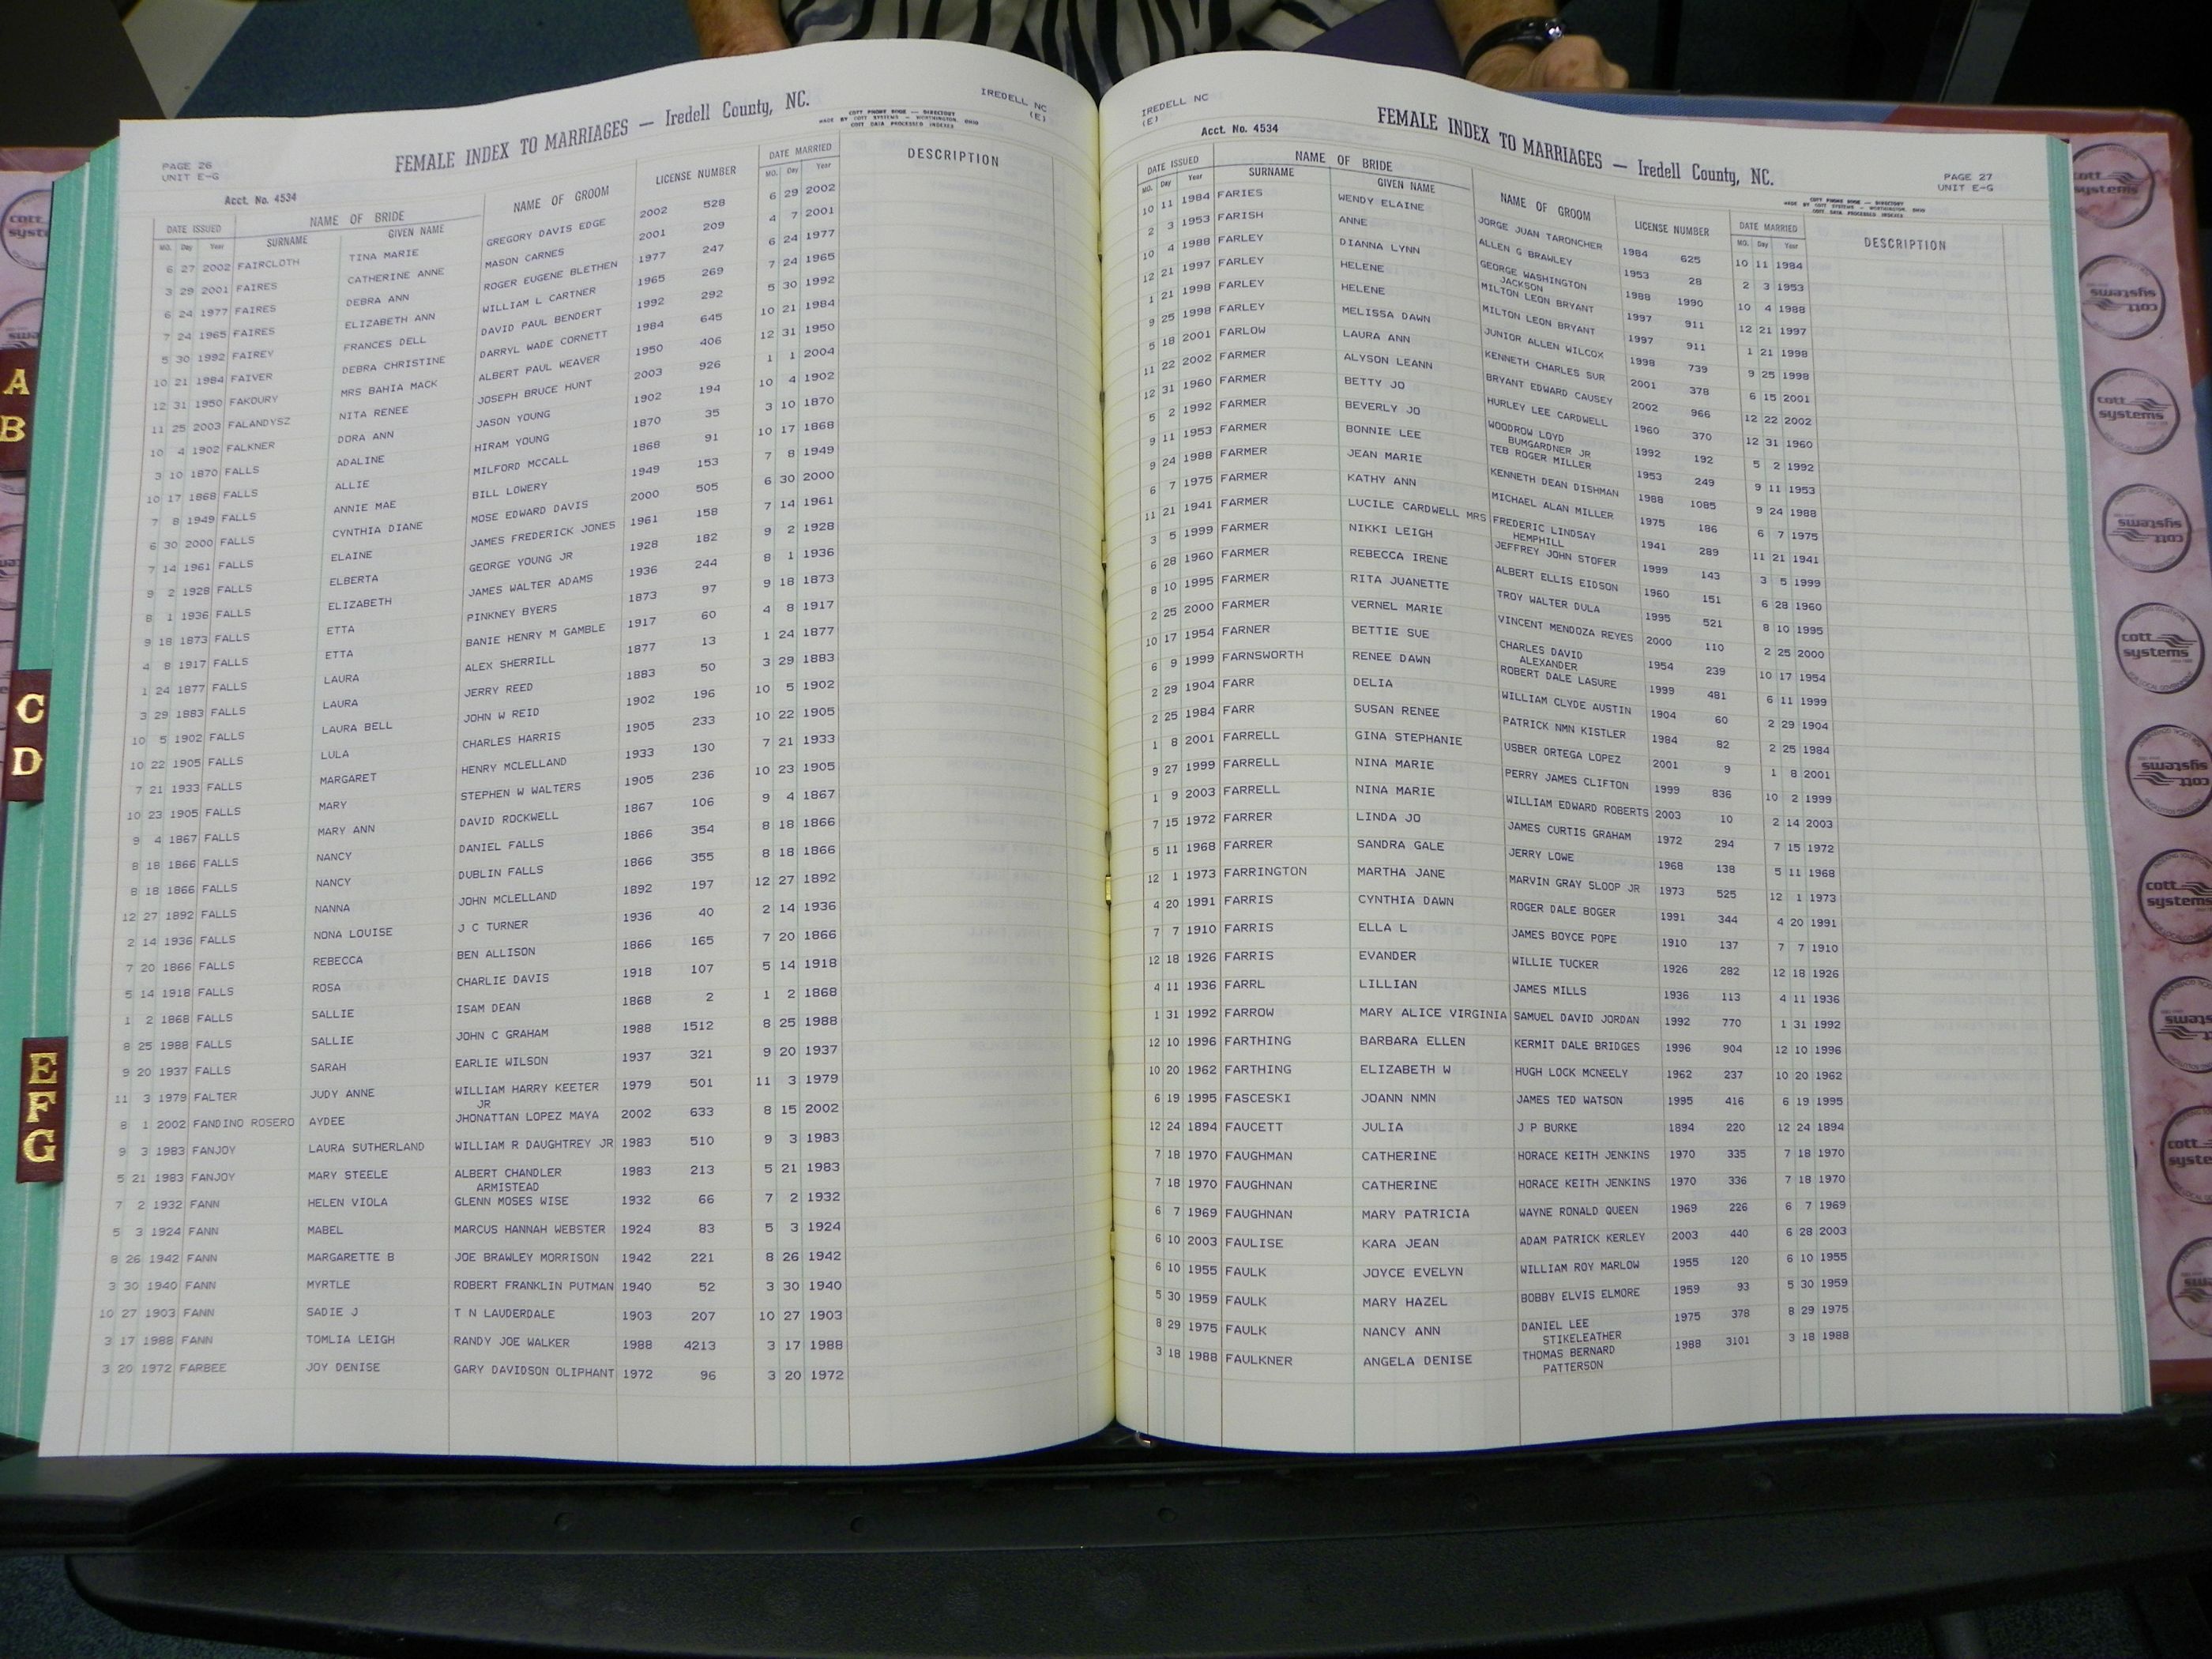 IREDELL NC
(E)
FEMALE INDEX TO MARRIAGES — Iredell County, NC.
COTT PHONE BOOK — DIRECTORY
MADE BY COTT SYSTEMS — WORTHINGTON, OHIO
COTT DATA PROCESSED INDEXES
PAGE 26
UNIT E-G
Acct. No. 4534
DATE ISSUED NAME OF BRIDE NAME OF GROOM LICENSE NUMBER DATE MARRIED DESCRIPTION
MO. Day Year SURNAME GIVEN NAME MO. Day Year
6 27 2002 FAIRCLOTH TINA MARIE GREGORY DAVIS EDGE 2002 528 6 29 2002
3 29 2001 FAIRES CATHERINE ANNE MASON CARNES 2001 209 4 7 2001
6 24 1977 FAIRES DEBRA ANN ROGER EUGENE BLETHEN 1977 247 6 24 1977
7 24 1965 FAIRES ELIZABETH ANN WILLIAM L CARTNER 1965 269 7 24 1965
5 30 1992 FAIREY FRANCES DELL DAVID PAUL BENDERT 1992 292 5 30 1992
10 21 1984 FAIVER DEBRA CHRISTINE DARRYL WADE CORNETT 1984 645 10 21 1984
12 31 1950 FAKOURY MRS BAHIA MACK ALBERT PAUL WEAVER 1950 406 12 31 1950
11 25 2003 FALANDYSZ NITA RENEE JOSEPH BRUCE HUNT 2003 926 1 1 2004
10 4 1902 FALKNER DORA ANN JASON YOUNG 1902 194 10 4 1902
3 10 1870 FALLS ADALINE HIRAM YOUNG 1870 35 3 10 1870
10 17 1868 FALLS ALLIE MILFORD MCCALL 1868 91 10 17 1868
7 8 1949 FALLS ANNIE MAE BILL LOWERY 1949 153 7 8 1949
6 30 2000 FALLS CYNTHIA DIANE MOSE EDWARD DAVIS 2000 505 6 30 2000
7 14 1961 FALLS ELAINE JAMES FREDERICK JONES 1961 158 7 14 1961
9 2 1928 FALLS ELBERTA GEORGE YOUNG JR 1928 182 9 2 1928
8 1 1936 FALLS ELIZABETH JAMES WALTER ADAMS 1936 244 8 1 1936
9 18 1873 FALLS ETTA PINKNEY BYERS 1873 97 9 18 1873
4 8 1917 FALLS ETTA BANIE HENRY M GAMBLE 1917 60 4 8 1917
1 24 1877 FALLS LAURA ALEX SHERRILL 1877 13 1 24 1877
3 29 1883 FALLS LAURA JERRY REED 1883 50 3 29 1883
10 5 1902 FALLS LAURA BELL JOHN W REID 1902 196 10 5 1902
10 22 1905 FALLS LULA CHARLES HARRIS 1905 233 10 22 1905
7 21 1933 FALLS MARGARET HENRY MCLELLAND 1933 130 7 21 1933
10 23 1905 FALLS MARY STEPHEN W WALTERS 1905 236 10 23 1905
9 4 1867 FALLS MARY ANN DAVID ROCKWELL 1867 106 9 4 1867
8 18 1866 FALLS NANCY DANIEL FALLS 1866 354 8 18 1866
8 18 1866 FALLS NANCY DUBLIN FALLS 1866 355 8 18 1866
12 27 1892 FALLS NANNA JOHN MCLELLAND 1892 197 12 27 1892
2 14 1936 FALLS NONA LOUISE J C TURNER 1936 40 2 14 1936
7 20 1866 FALLS REBECCA BEN ALLISON 1866 165 7 20 1866
5 14 1918 FALLS ROSA CHARLIE DAVIS 1918 107 5 14 1918
1 2 1868 FALLS SALLIE ISAM DEAN 1868 2 1 2 1868
8 25 1988 FALLS SALLIE JOHN C GRAHAM 1988 1512 8 25 1988
9 20 1937 FALLS SARAH EARLIE WILSON 1937 321 9 20 1937
11 3 1979 FALTER JUDY ANNE WILLIAM HARRY KEETER 1979 501 11 3 1979
JR
8 1 2002 FANDINO ROSERO AYDEE JHONATTAN LOPEZ MAYA 2002 633 8 15 2002
9 3 1983 FANJOY LAURA SUTHERLAND WILLIAM R DAUGHTREY JR 1983 510 9 3 1983
5 21 1983 FANJOY MARY STEELE ALBERT CHANDLER 1983 213 5 21 1983
ARMISTEAD
7 2 1932 FANN HELEN VIOLA GLENN MOSES WISE 1932 66 7 2 1932
5 3 1924 FANN MABEL MARCUS HANNAH WEBSTER 1924 83 5 3 1924
8 26 1942 FANN MARGARETTE B JOE BRAWLEY MORRISON 1942 221 8 26 1942
3 30 1940 FANN MYRTLE ROBERT FRANKLIN PUTMAN 1940 52 3 30 1940
10 27 1903 FANN SADIE J T N LAUDERDALE 1903 207 10 27 1903
3 17 1988 FANN TOMLIA LEIGH RANDY JOE WALKER 1988 4213 3 17 1988
3 20 1972 FARBEE JOY DENISE GARY DAVIDSON OLIPHANT 1972 96 3 20 1972
IREDELL NC
(E)
Acct. No. 4534
FEMALE INDEX TO MARRIAGES — Iredell County, NC.
PAGE 27
UNIT E-G
COTT PHONE BOOK — DIRECTORY
MADE BY COTT SYSTEMS — WORTHINGTON, OHIO
COTT DATA PROCESSED INDEXES
DATE ISSUED NAME OF BRIDE NAME OF GROOM LICENSE NUMBER DATE MARRIED DESCRIPTION
MO. Day Year SURNAME GIVEN NAME MO. Day Year
10 11 1984 FARIES WENDY ELAINE JORGE JUAN TARONCHER 1984 625 10 11 1984
2 3 1953 FARISH ANNE ALLEN G BRAWLEY 1953 28 2 3 1953
10 4 1988 FARLEY DIANNA LYNN GEORGE WASHINGTON 1988 1990 10 4 1988
JACKSON
12 21 1997 FARLEY HELENE MILTON LEON BRYANT 1997 911 12 21 1997
1 21 1998 FARLEY HELENE MILTON LEON BRYANT 1997 911 1 21 1998
9 25 1998 FARLEY MELISSA DAWN JUNIOR ALLEN WILCOX 1998 739 9 25 1998
5 18 2001 FARLOW LAURA ANN KENNETH CHARLES SUR 2001 378 6 15 2001
11 22 2002 FARMER ALYSON LEANN BRYANT EDWARD CAUSEY 2002 966 12 22 2002
12 31 1960 FARMER BETTY JO HURLEY LEE CARDWELL 1960 370 12 31 1960
5 2 1992 FARMER BEVERLY JO WOODROW LOYD 1992 192 5 2 1992
BUMGARDNER JR
9 11 1953 FARMER BONNIE LEE TEB ROGER MILLER 1953 249 9 11 1953
9 24 1988 FARMER JEAN MARIE KENNETH DEAN DISHMAN 1988 1085 9 24 1988
6 7 1975 FARMER KATHY ANN MICHAEL ALAN MILLER 1975 186 6 7 1975
11 21 1941 FARMER LUCILE CARDWELL MRS FREDERIC LINDSAY 1941 289 11 21 1941
HEMPHILL
3 5 1999 FARMER NIKKI LEIGH JEFFREY JOHN STOFER 1999 143 3 5 1999
6 28 1960 FARMER REBECCA IRENE ALBERT ELLIS EIDSON 1960 151 6 28 1960
8 10 1995 FARMER RITA JUANETTE TROY WALTER DULA 1995 521 8 10 1995
2 25 2000 FARMER VERNEL MARIE VINCENT MENDOZA REYES 2000 110 2 25 2000
10 17 1954 FARNER BETTIE SUE CHARLES DAVID 1954 239 10 17 1954
ALEXANDER
6 9 1999 FARNSWORTH RENEE DAWN ROBERT DALE LASURE 1999 481 6 11 1999
2 29 1904 FARR DELIA WILLIAM CLYDE AUSTIN 1904 60 2 29 1904
2 25 1984 FARR SUSAN RENEE PATRICK NMN KISTLER 1984 82 2 25 1984
1 8 2001 FARRELL GINA STEPHANIE USBER ORTEGA LOPEZ 2001 9 1 8 2001
9 27 1999 FARRELL NINA MARIE PERRY JAMES CLIFTON 1999 836 10 2 1999
1 9 2003 FARRELL NINA MARIE WILLIAM EDWARD ROBERTS 2003 10 2 14 2003
7 15 1972 FARRER LINDA JO JAMES CURTIS GRAHAM 1972 294 7 15 1972
5 11 1968 FARRER SANDRA GALE JERRY LOWE 1968 138 5 11 1968
12 1 1973 FARRINGTON MARTHA JANE MARVIN GRAY SLOOP JR 1973 525 12 1 1973
4 20 1991 FARRIS CYNTHIA DAWN ROGER DALE BOGER 1991 344 4 20 1991
7 7 1910 FARRIS ELLA L JAMES BOYCE POPE 1910 137 7 7 1910
12 18 1926 FARRIS EVANDER WILLIE TUCKER 1926 282 12 18 1926
4 11 1936 FARRL LILLIAN JAMES MILLS 1936 113 4 11 1936
1 31 1992 FARROW MARY ALICE VIRGINIA SAMUEL DAVID JORDAN 1992 770 1 31 1992
12 10 1996 FARTHING BARBARA ELLEN KERMIT DALE BRIDGES 1996 904 12 10 1996
10 20 1962 FARTHING ELIZABETH W HUGH LOCK MCNEELY 1962 237 10 20 1962
6 19 1995 FASCESKI JOANN NMN JAMES TED WATSON 1995 416 6 19 1995
12 24 1894 FAUCETT JULIA J P BURKE 1894 220 12 24 1894
7 18 1970 FAUGHMAN CATHERINE HORACE KEITH JENKINS 1970 335 7 18 1970
7 18 1970 FAUGHNAN CATHERINE HORACE KEITH JENKINS 1970 336 7 18 1970
6 7 1969 FAUGHNAN MARY PATRICIA WAYNE RONALD QUEEN 1969 226 6 7 1969
6 10 2003 FAULISE KARA JEAN ADAM PATRICK KERLEY 2003 440 6 28 2003
6 10 1955 FAULK JOYCE EVELYN WILLIAM ROY MARLOW 1955 120 6 10 1955
5 30 1959 FAULK MARY HAZEL BOBBY ELVIS ELMORE 1959 93 5 30 1959
8 29 1975 FAULK NANCY ANN DANIEL LEE 1975 378 8 29 1975
STIKELEATHER
3 18 1988 FAULKNER ANGELA DENISE THOMAS BERNARD 1988 3101 3 18 1988
PATTERSON
A
B
C
D
E
F
G
cott
systems
cott
systems
cott
systems
cott
systems